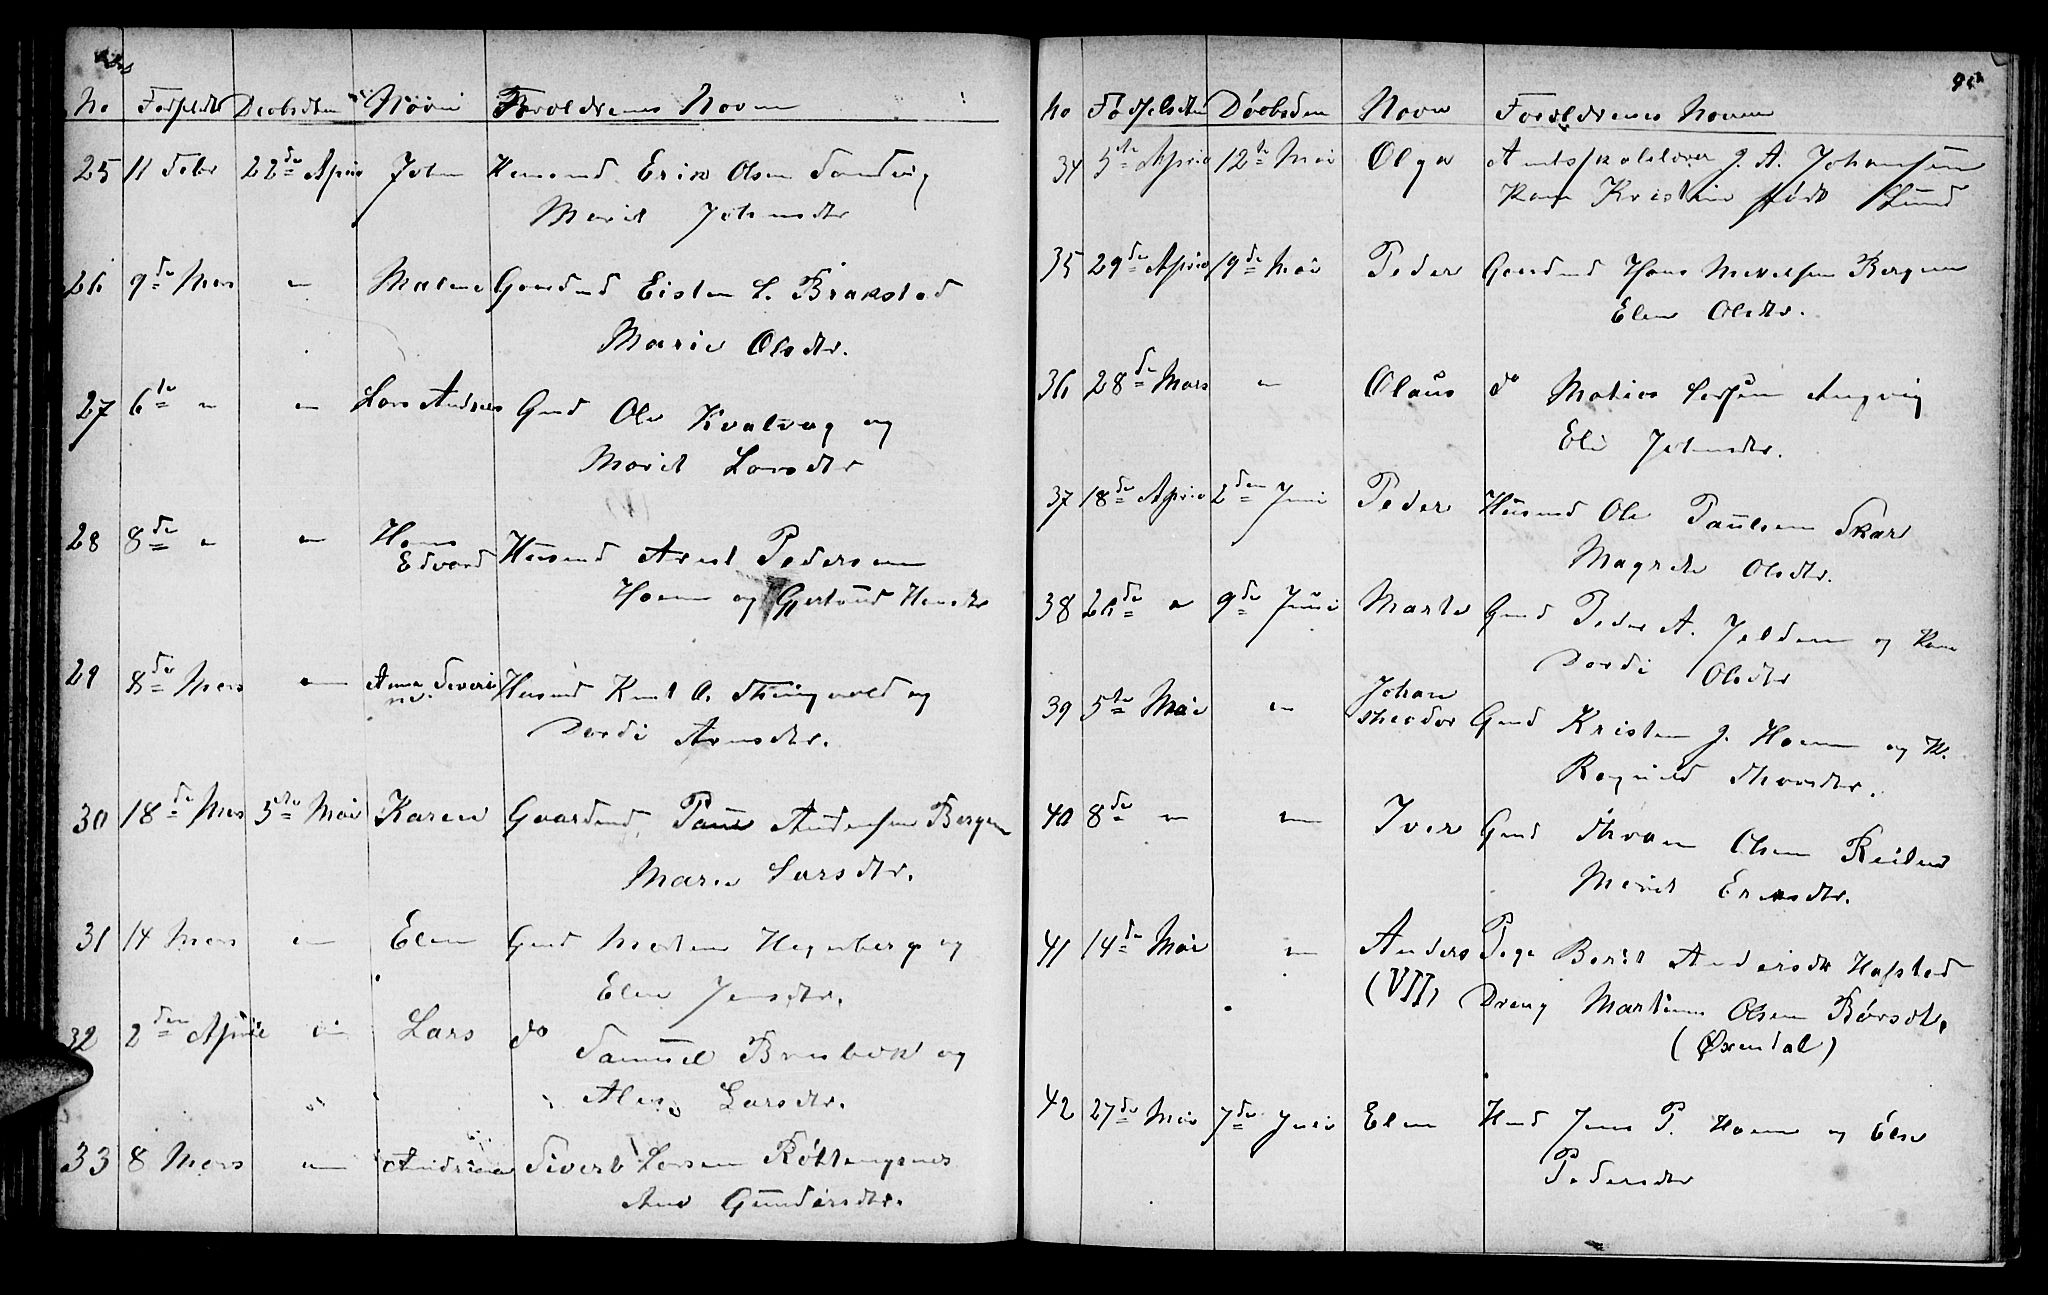 No Fødselsdt Døbsdten Navn Forældrenes Navne
25 11 Febr 22de April John Husmd Erik Olsen Sandvig
Marit Johnsdtr
26 9de Mars " Malene Gaardmd Eisten L. Brakstad
Marie Olsdtr.
27 6te " " Lars Andreas Gmd Ole Kvalvag og
Marit Larsdtr
28 8de " " Hans Husmd Arnt Pedersen
Edvard Hoem og Gjertrud Hansdtr
29 8de Mars " Anna Severi Husmd Knut A. Thingvold og
ne Dordi Arnsdtr.
30 18de Mars 5te Mai Karen Gaardmd. Paul Andersen Bergem
Maren Larsdtr.
31 14 Mars " Elen Gmd Morten Hegerberg og
Elen Jensdtr.
32 2den April " Lars do Samuel Brusbak og
Larsdtr.
33 8 Mars " Sivert Larsen
Ane Gundersdtr.
No Fødselsdten Døbsdten Navn Forældrenes Navne
34 5te April 12te Mai Olga Amtsskolelærer J. A. Johansen
Kone Kristine født Lund
35 29de April 19de Mai Peder Gaardmd Hans Bergem
Elen Olsdtr.
36 28de Mars " Olaus do Matias Angvig
Eli Johnsdtr.
37 18de April 2den Juni Peder Husmd Ole Paulsen Skar
Magrete Olsdtr.
38 26de " 9de Juni Marte Gmd Peder A. Jelden og Kone
Dordi Olsdtr
39 5te Mai " Johan
Theodor Gmd Kristen J. Hoem og K.
Ragnild Thorsdtr.
40 8de " " Iver Gmd Thron Olsen
Marit Eriksdtr.
41 14de Mai " Anders Pige Berit Andersdtr Hafstad
(VII) Dreng Martinus Olsen
(Øxendal)
42 27de Mai 7de Juli Elen Hmd Jens P. Hoem og Else
Pedersdtr